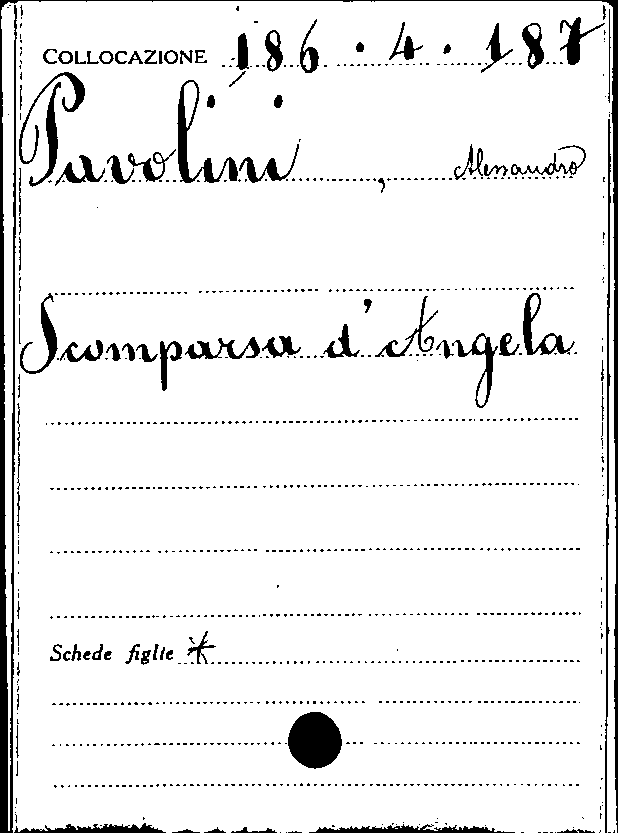 COLLOCAZIONE 186.4.187
Pavolini, Alessandro
Scomparsa d'Angela
Schede figlie *